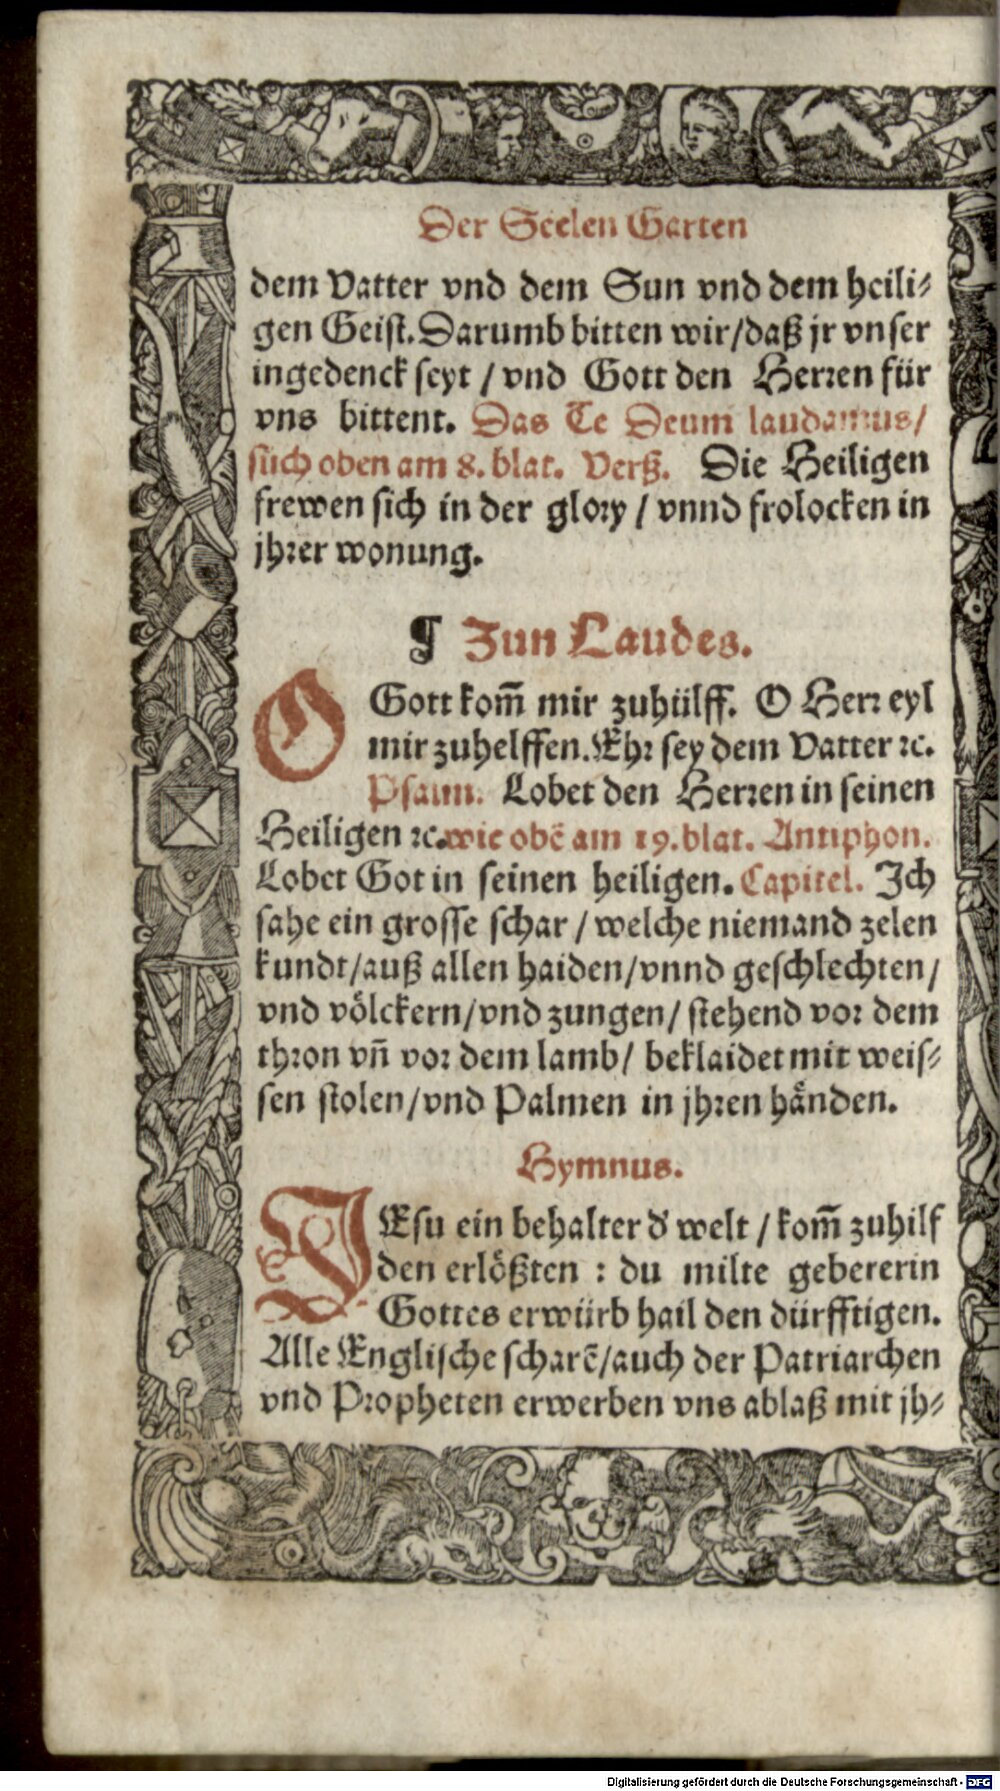 Der Seelen Garten
dem Vatter vnd dem Sun vnd dem heili⸗
gen Geist. Darumb bitten wir/daß jr vnser
ingedenck seyt / vnd Gott den Herren für
vns bittent. Das Te Deum laudamus/
süch oben am 8. blat. Verß. Die Heiligen
frewen sich in der glory / vnnd frolocken in
jhrer wonung.
¶ Zun Laudes.
O Gott kom̄ mir zuhülff. O Herr eyl
mir zuhelffen. Ehr sey dem Vatter ꝛc.
Psalm. Lobet den Herren in seinen
Heiligen ꝛc. wie obē am 19. blat. Antiphon.
Lobet Got in seinen heiligen. Capitel. Ich
sahe ein grosse schar / welche niemand zelen
kundt/auß allen haiden/vnnd geschlechten/
vnd völckern/vnd zungen/ stehend vor dem
thron vn̄ vor dem lamb/ beklaidet mit weis⸗
sen stolen/vnd Palmen in jhren händen.
Hymnus.
IEsu ein behalter d' welt / kom̄ zuhilf
den erlößten : du milte gebererin
Gottes erwürb hail den dürfftigen.
Alle Englische scharē/auch der Patriarchen
vnd Propheten erwerben vns ablaß mit jh⸗
Digitalisierung gefördert durch die Deutsche Forschungsgemeinschaft - DFG